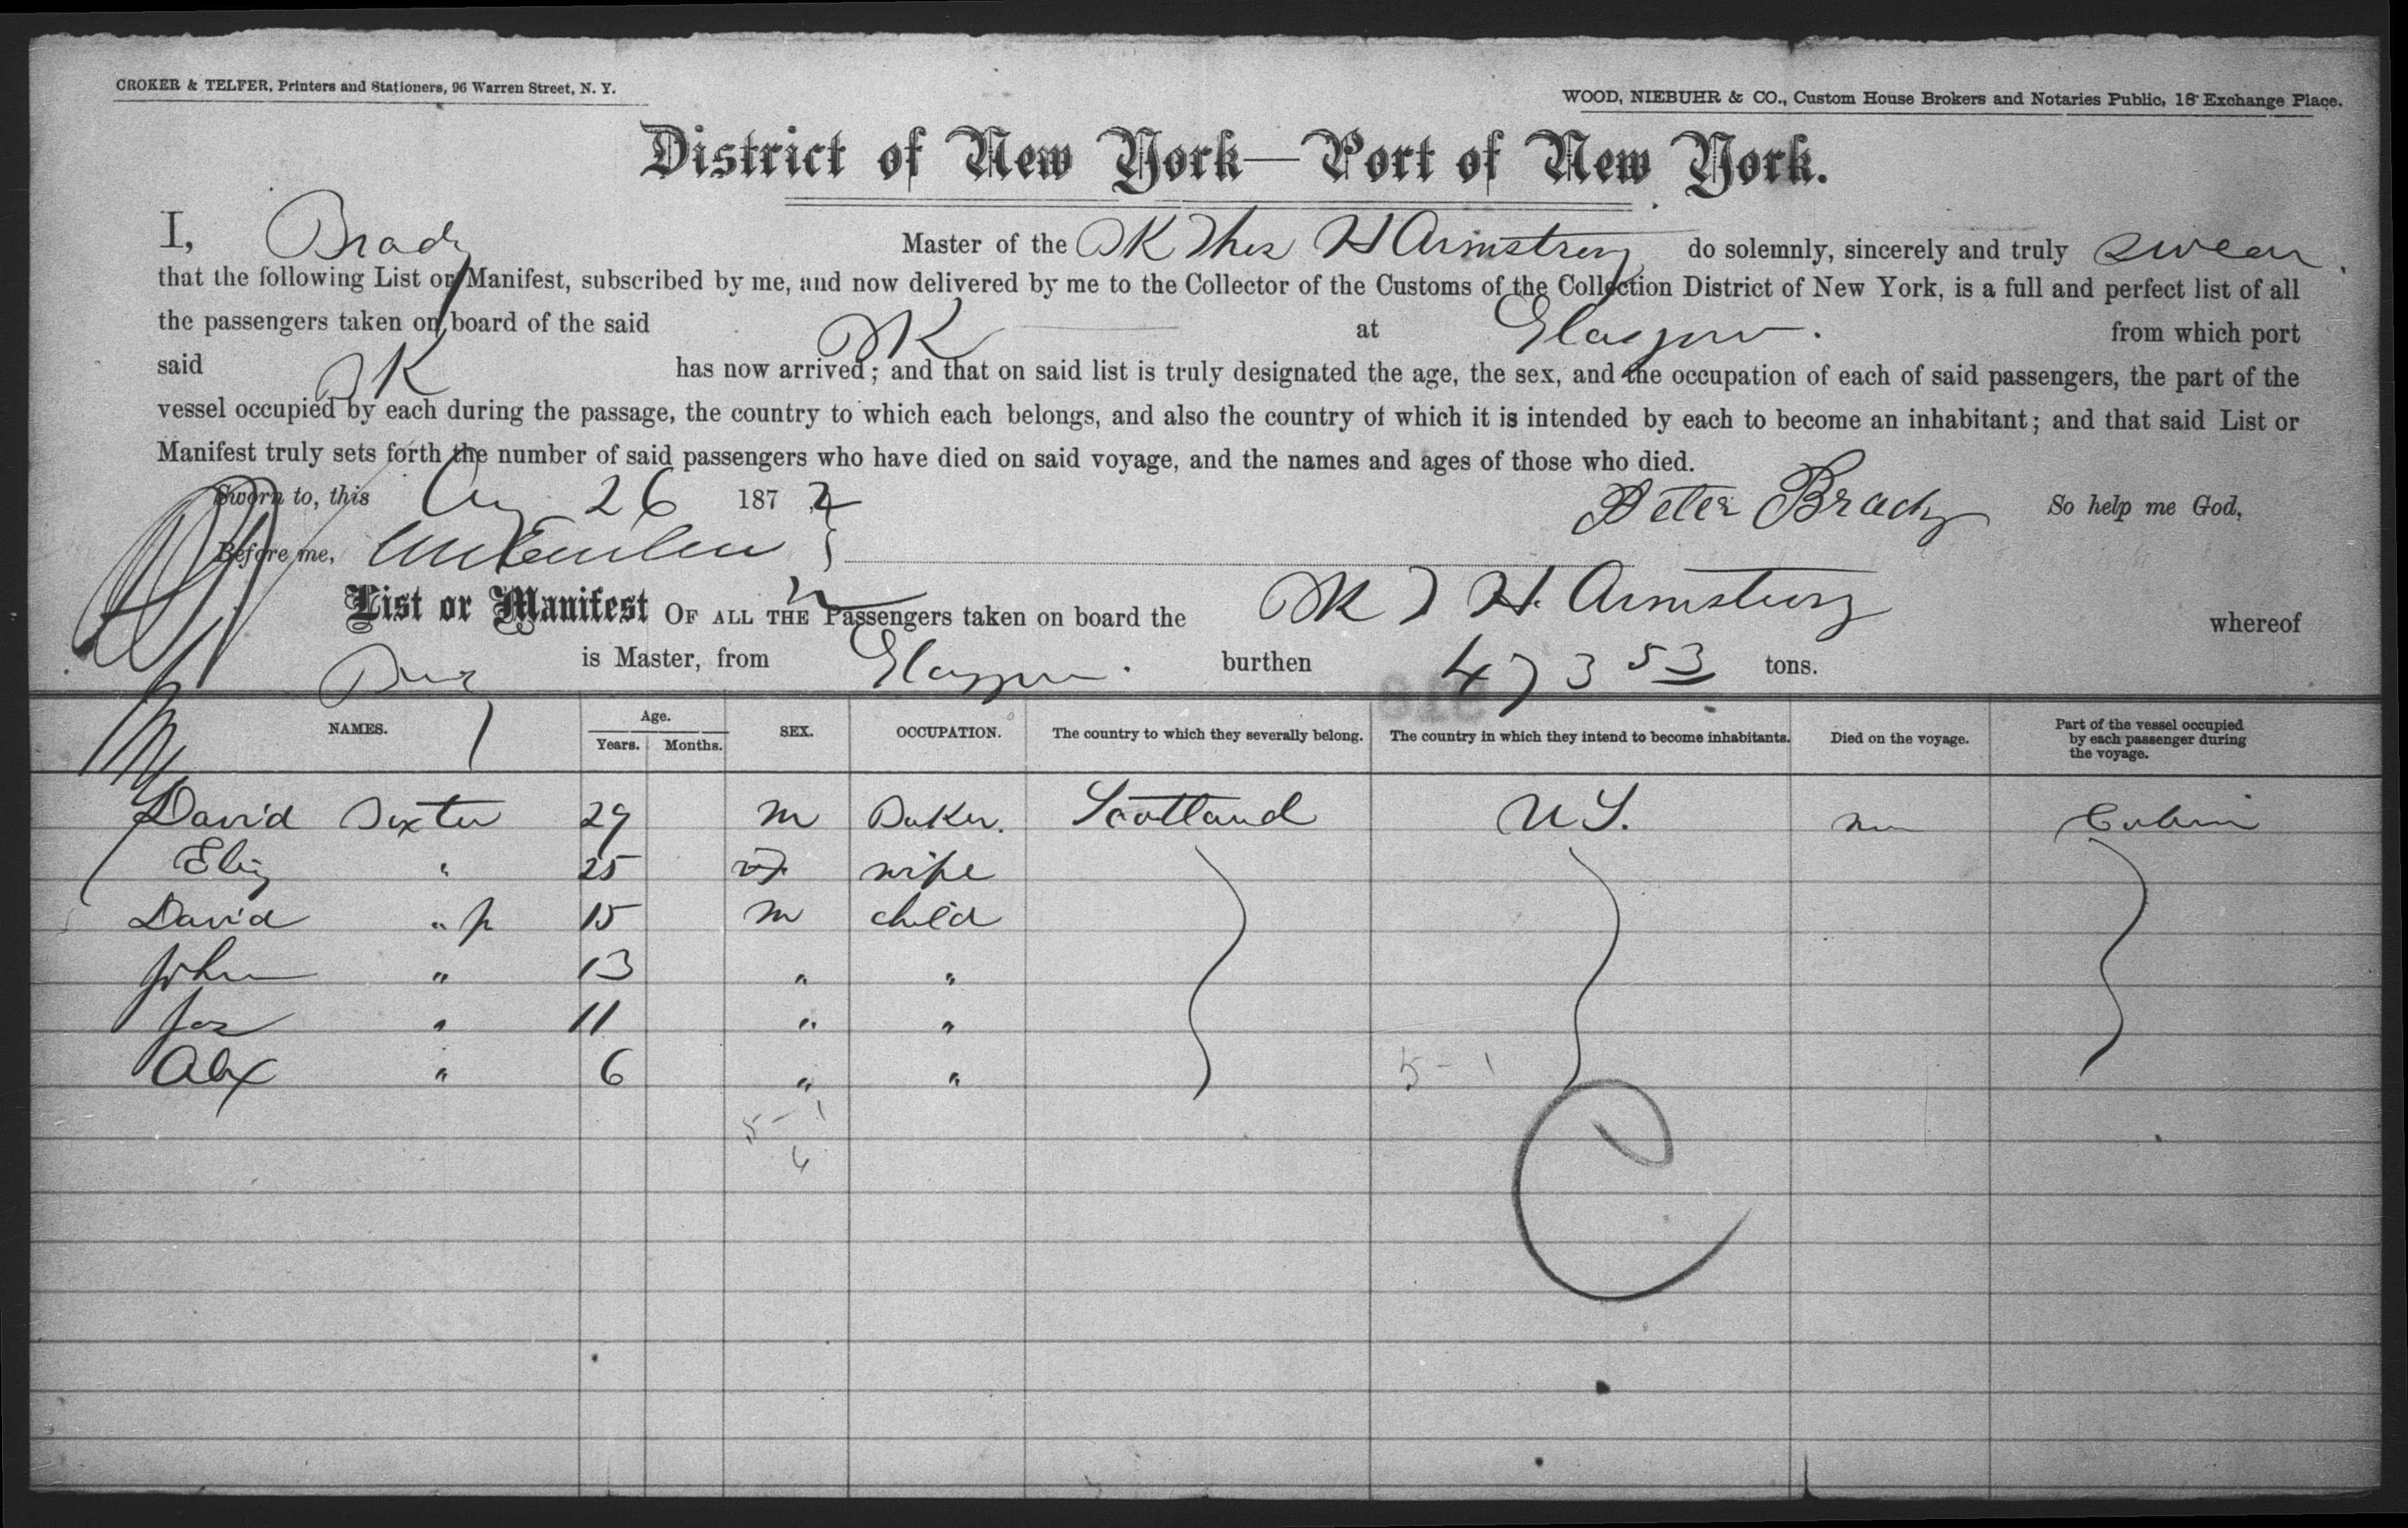 CROKER & TELFER, Printers and Stationers, 96 Warren Street, N. Y.
WOOD, NIEBUHR & CO., Custom House Brokers and Notaries Public, 18 Exchange Place.
District of New York—Port of New York.
I, Brady Master of the BK Thos H Armstrong do solemnly, sincerely and truly swear
that the following List or Manifest, subscribed by me, and now delivered by me to the Collector of the Customs of the Collection District of New York, is a full and perfect list of all
the passengers taken on board of the said BK at Glasgow. from which port
said BK has now arrived; and that on said list is truly designated the age, the sex, and the occupation of each of said passengers, the part of the
vessel occupied by each during the passage, the country to which each belongs, and also the country of which it is intended by each to become an inhabitant; and that said List or
Manifest truly sets forth the number of said passengers who have died on said voyage, and the names and ages of those who died.
Sworn to, this Aug 26 187 Peter Brady So help me God,
Before me,
List or Manifest OF ALL THE Passengers taken on board the BK T H. Armstrong whereof
is Master, from Glasgow. burthen 473 53 tons.
NAMES. Age. Years. Months. SEX. OCCUPATION. The country to which they severally belong. The country in which they intend to become inhabitants. Died on the voyage. Part of the vessel occupied by each passenger during the voyage.
David 29 m Baker. Scotland U S. Cabin
Eliz " 25 f wife
David " 15 m child
John " 13 " "
Jas " 11 " "
Alex " 6 " "
5 - 1
5 - 1
6
C